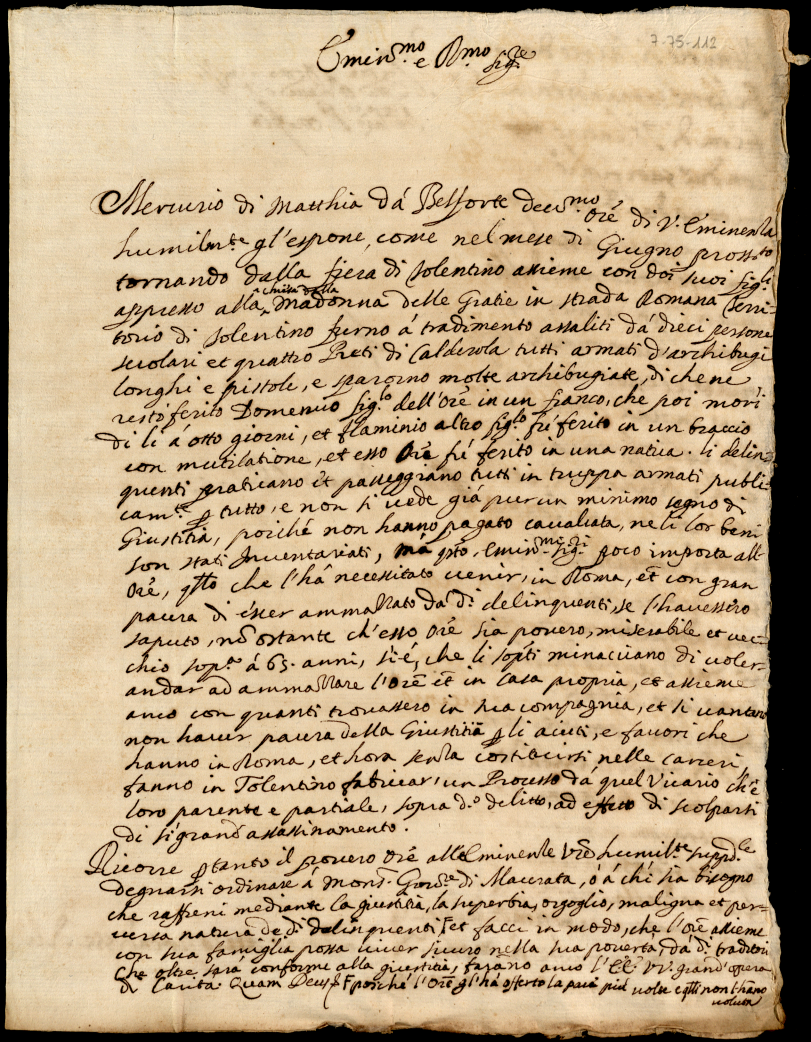 7-75-112
Emin.mo e R.mo Sig.re
Mercurio di Matthia dà Belforte dev.mo Ore di V. Eminenza
humilm.te gl'espone, come nel mese di Giugno pross.to
tornando dalla fiera di Tolentino assieme con doi suoi figli
appresso alla Chiesa della Madonna delle Gratie in strada Romana Terri-
torio di Tolentino furno à tradimento assaliti dà dieci persone
scolari et quattro Preti di Calderola tutti armati d'archibugi
longhi e pistole, e sparorno molte archibugiate, di che ne
restò ferito Domenico fig.lo dell'Ore in un fianco, che poi morì
di lì à otto giorni, et Flaminio altro fig.lo fù ferito in un braccio
con mutilatione, et esso Ore fù ferito in una natica. li delin-
quenti praticano et passeggiano tutti in truppa armati publi-
cam.te p tutto, e non si vede già pur un minimo segno di
Giustitia, poiche non hanno pagato cavalcata, ne li lor beni
son stati Inventariati, mà q.to, Emin.mi Sig.ri poco importa all'
Ore, q.llo che l'hà necessitato venir, in Roma, et con gran
paura di esser ammazzato dà d.i delinquenti, se l'havessero
saputo, nō ostante ch'esso Ore sia povero, miserabile et vec-
chio sop.a à 65. anni, si è, che li sop.ti minacciano di voler
andar ad ammazzare l'Ore et in casa propria, et assieme
anco con quanti trovassero in sua compagnia, et si vantano
non haver paura della Giustitia p li aiuti, e favori che
hanno in Roma, et hora senza costituirsi nelle carceri,
fanno in Tolentino fabricar, un Processo dà quel Vicario ch'è
loro parente e partiale, sopra d.o delitto, ad effetto di scolparsi
di sì grand'assassinamento.
Ricorre p tanto il povero Ore all'Eminenze Vre humilm.te supp.le
degnarsi ordinare à Mons.r Gover.re di Macerata, ò à chi sia bisogno
che raffreni mediante la giustitia, la superbia, orgoglio, maligna et per-
versa natura de d.i delinquenti F et facci in modo, che l'Ore assieme
con sua famiglia possa viver sicuro nella sua povertà, dà d.i traditori
che oltre, sarà conforme alla giustitia, farano anco l'EE. VV. grand'opera
di Carità. Quam Deus F perche l'Ore gl'hà offerto la pace più volte e q.lli non l'hāno
voluta